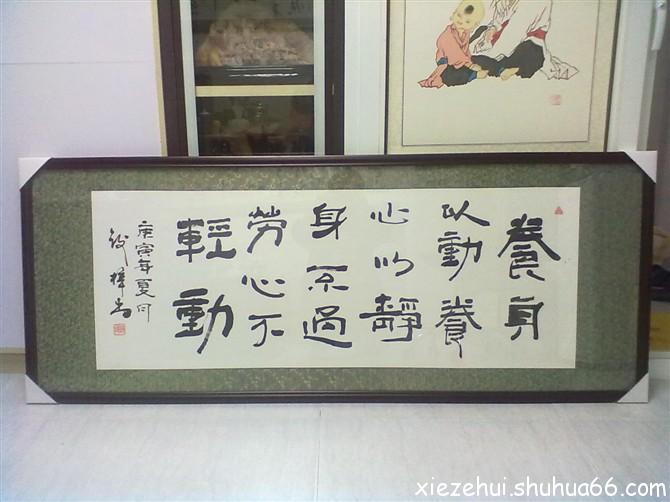 養身
以動養
心以靜
身不過
勞心不
輕動
庚寅年夏月
xiezehui.shuhua66.com